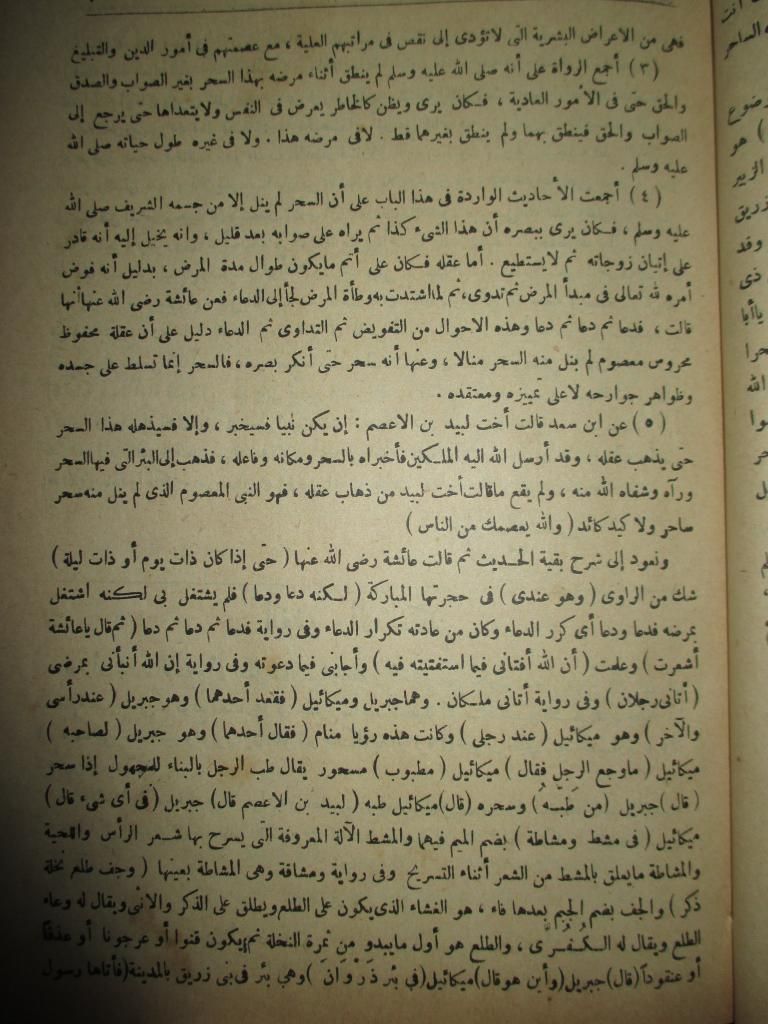 فهى من الاعراض البشرية التى لاتؤدى إلى نقص فى مراتبهم العلية ، مع عصمتهم فى أمور الدين والتبليغ
(٣) أجمع الرواة على أنه صلى الله عليه وسلم لم ينطق أثناء مرضه بهذا السحر بغير الصواب والصدق
والحق حتى فى الأمور العادية ، فكان يرى ويظن كالخاطر يعرض فى النفس ولا يتعداها حتى يرجع إلى
الصواب والحق فينطق بهما ولم ينطق بغيرهما قط . لافى مرضه هذا . ولا فى غيره طول حياته صلى الله
عليه وسلم .
(٤) أجمعت الأحاديث الواردة فى هذا الباب على أن السحر لم ينل إلا من جسمه الشريف صلى الله
عليه وسلم ، فكان يرى ببصره أن هذا الشىء كذا ثم يراه على صوابه بعد قليل ، وانه يخيل إليه أنه قادر
على إتيان زوجاته ثم لا يستطيع . أما عقله فكان على أتم مايكون طوال مدة المرض ، بدليل أنه فوض
أمره لله تعالى فى مبدأ المرض ثم تدوى ، ثم لما اشتدت به وطأة المرض لجأ إلى الدعاء فعن عائشة رضى الله عنها أنها
قالت ، فدعا ثم دعا ثم دعا وهذه الاحوال من التفويض ثم التداوى ثم الدعاء دليل على أن عقلة محفوظ
محروس معصوم لم ينل منه السحر منالا ، وعنها أنه سحر حتى أنكر بصره ، فالسحر إنما تسلط على جسده
وظواهر جوارحه لاعلى تمييزه ومعتقده .
(٥) عن ابن سعد قالت أخت لبيد بن الاعصم : إن يكن نبيا فسيخبر ، وإلا فسيذهله هذا السحر
حتى يذهب عقله ، وقد أرسل الله اليه الملكين فأخبراه بالسحر ومكانه وفاعله ، فذهب إلى البئر التى فيها السحر
ورآه وشفاه الله منه ، ولم يقع ماقالت أخت لبيد من ذهاب عقله ، فهو النبى المعصوم الذى لم ينل منه سحر
ساحر ولا كيد كائد ( والله يعصمك من الناس )
ونعود إلى شرح بقية الحديث ثم قالت عائشة رضى الله عنها ( حتى إذا كان ذات يوم أو ذات ليلة )
شك من الراوى ( وهو عندى ) فى حجرتها المباركة ( لكنه دعا ودعا ) فلم يشتغل بى لكنه اشتغل
بمرضه فدعا ودعا أى كرر الدعاء وكان من عادته تكرار الدعاء وفى رواية فدعا ثم دعا ثم دعا ( ثم قال ياعائشة
أشعرت ) وعلمت ( أن الله أفتانى فيما استفتيته فيه ) وأجابنى فيما دعوته وفى رواية إن الله أنبأنى بمرضى
( أتانى رجلان ) وفى رواية أتانى ملكان . وهما جبريل وميكائيل ( فقعد أحدهما ) وهو جبريل ( عند رأسى
والآخر ) وهو ميكائيل ( عند رجلى ) وكانت هذه رؤيا منام ( فقال أحدهما ) وهو جبريل ( لصاحبه )
ميكائيل ( ماوجع الرجل فقال ) ميكائيل ( مطبوب ) مسحور يقال طب الرجل بالبناء للمجهول إذا سحر
( قال ) جبريل ( من طَبَّهُ ) وسحره ( قال ) ميكائيل طبه ( لبيد بن الاعصم قال ) جبريل ( فى أى شىء قال )
ميكائيل ( فى مشط ومشاطة ) بضم الميم فيهما والمشط الآلة المعروفة التى يسرح بها شعر الرأس واللحية
والمشاطة مايعلق بالمشط من الشعر أثناء التسريح وفى رواية ومشاقة وهى المشاطة بعينها ( وجف طلع نخلة
ذكر ) والجف بضم الجيم بعدها فاء ، هو الغشاء الذى يكون على الطلع ويطلق على الذكر والانثى ويقال له وعاء
الطلع ويقال له الكُفُرَّى ، والطلع هو أول مايبدو من ثمرة النخلة ثم يكون قنوا أو عرجونا أو عذقا
أو عنقوداً ( قال ) جبريل ( وأين هو قال ) ميكائيل ( فى بئر ذَرْوَانَ ) وهى بئر فى بنى زريق بالمدينة ( فأتاها رسول